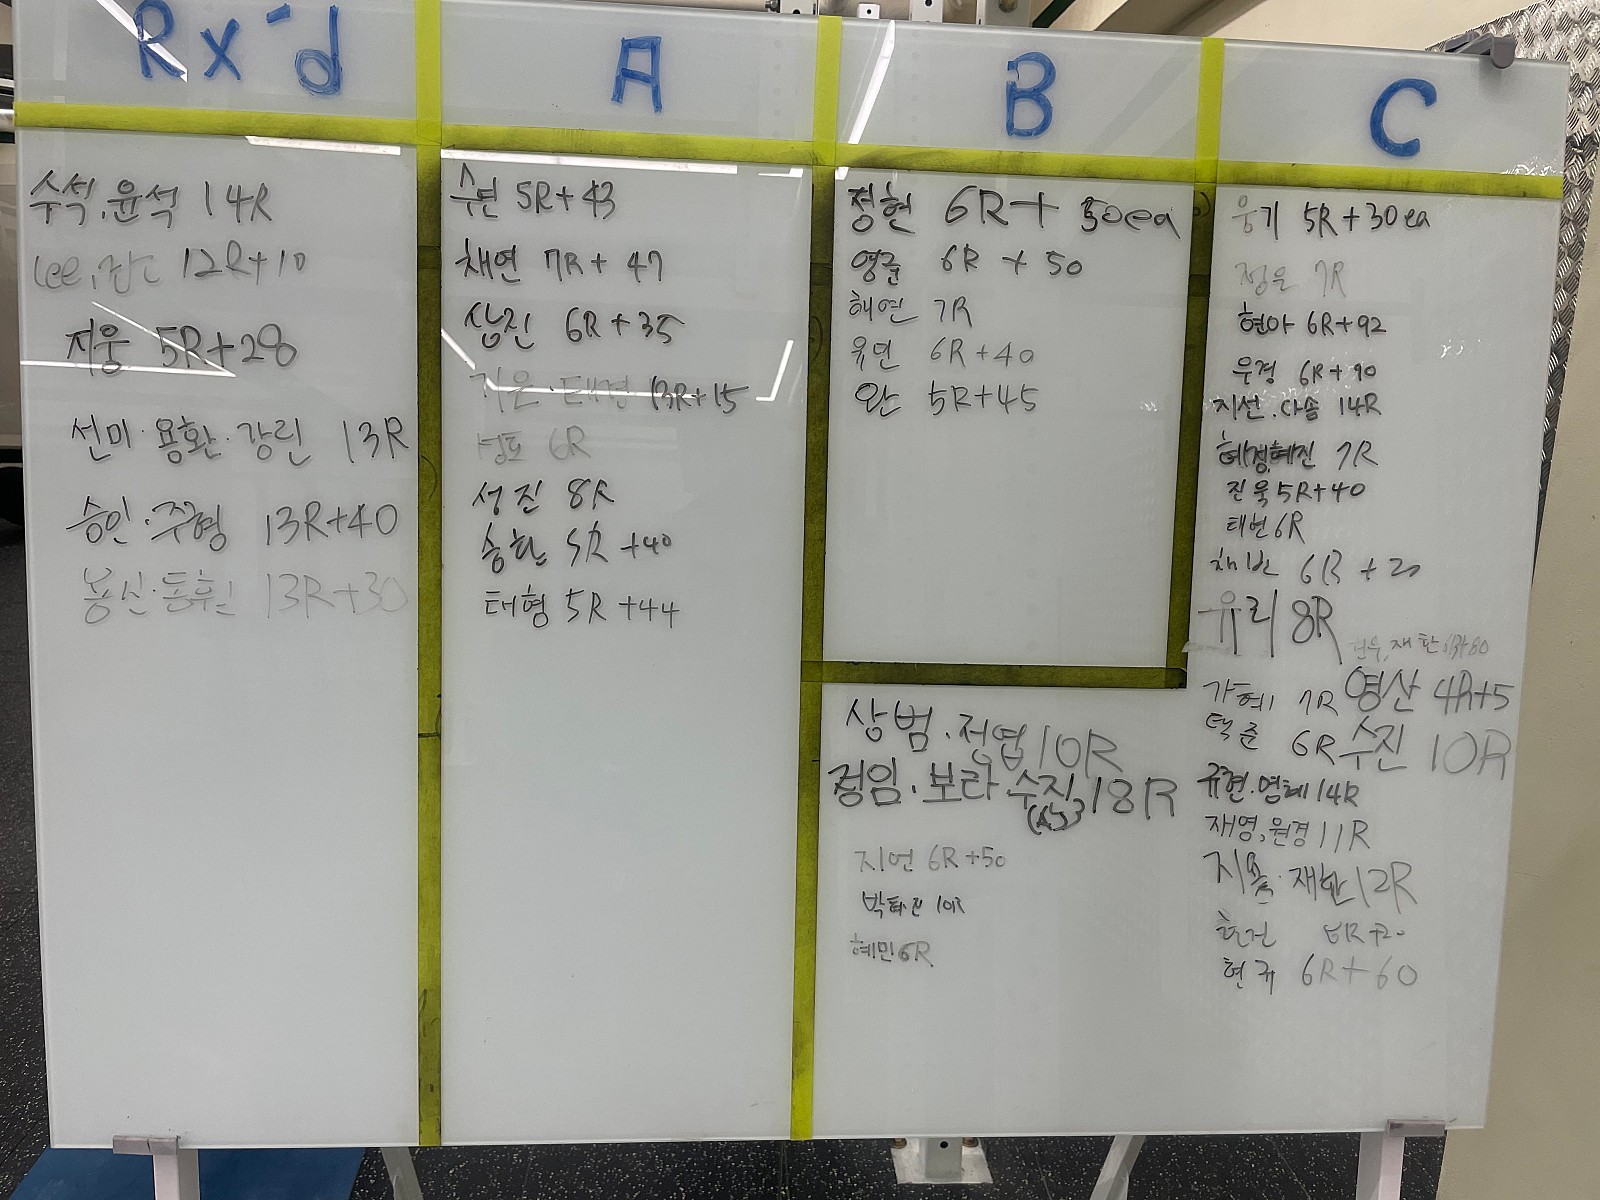 Rx'd
수석, 윤석 14R
Lee, 12R+10
지웅 5R+28
선미·용환·강린 13R
승인·주형 13R+40
용신·동훈 13R+30
A
수빈 5R+43
채연 7R+47
상진 6R+35
지은·태경 13R+15
6R
성진 8R
승환 5R+40
태형 5R+44
B
정현 6R+50ea
영준 6R+50
해연 7R
유연 6R+40
완 5R+45
상범·전엽 10R
정임·보라·수진 18R
(A)
지언 6R+50
박태진 10R
혜민 6R
C
웅기 5R+30ea
정은 7R
현아 6R+92
우경 6R+90
지선·다솜 14R
혜정,혜진 7R
진욱 5R+40
태헌 6R
채빈 6R+20
유리 8R
재환 80
가혜 7R 영산 4R+5
택준 6R 수진 10R
규현·영혜 14R
재영,원경 11R
지율·재환 12R
6R+20
현규 6R+60